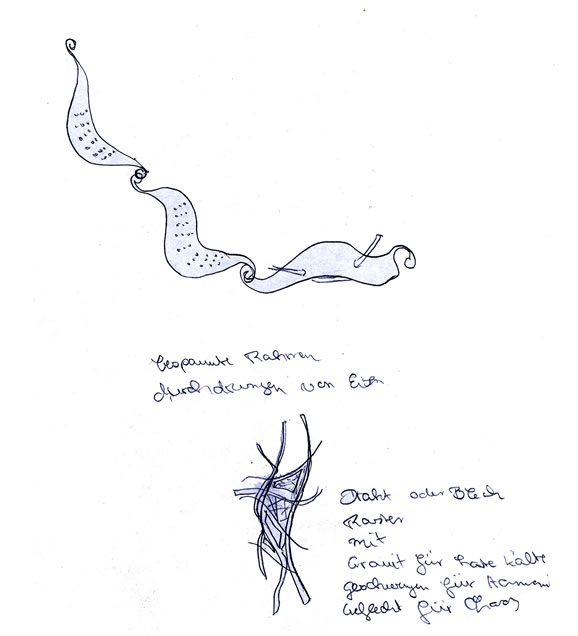 bespannte Rahmen
durchdrungen von Eisen
Draht oder Blech
mit
Granit für harte Kälte
geschwungen für Harmoni
Geflecht für Chaos